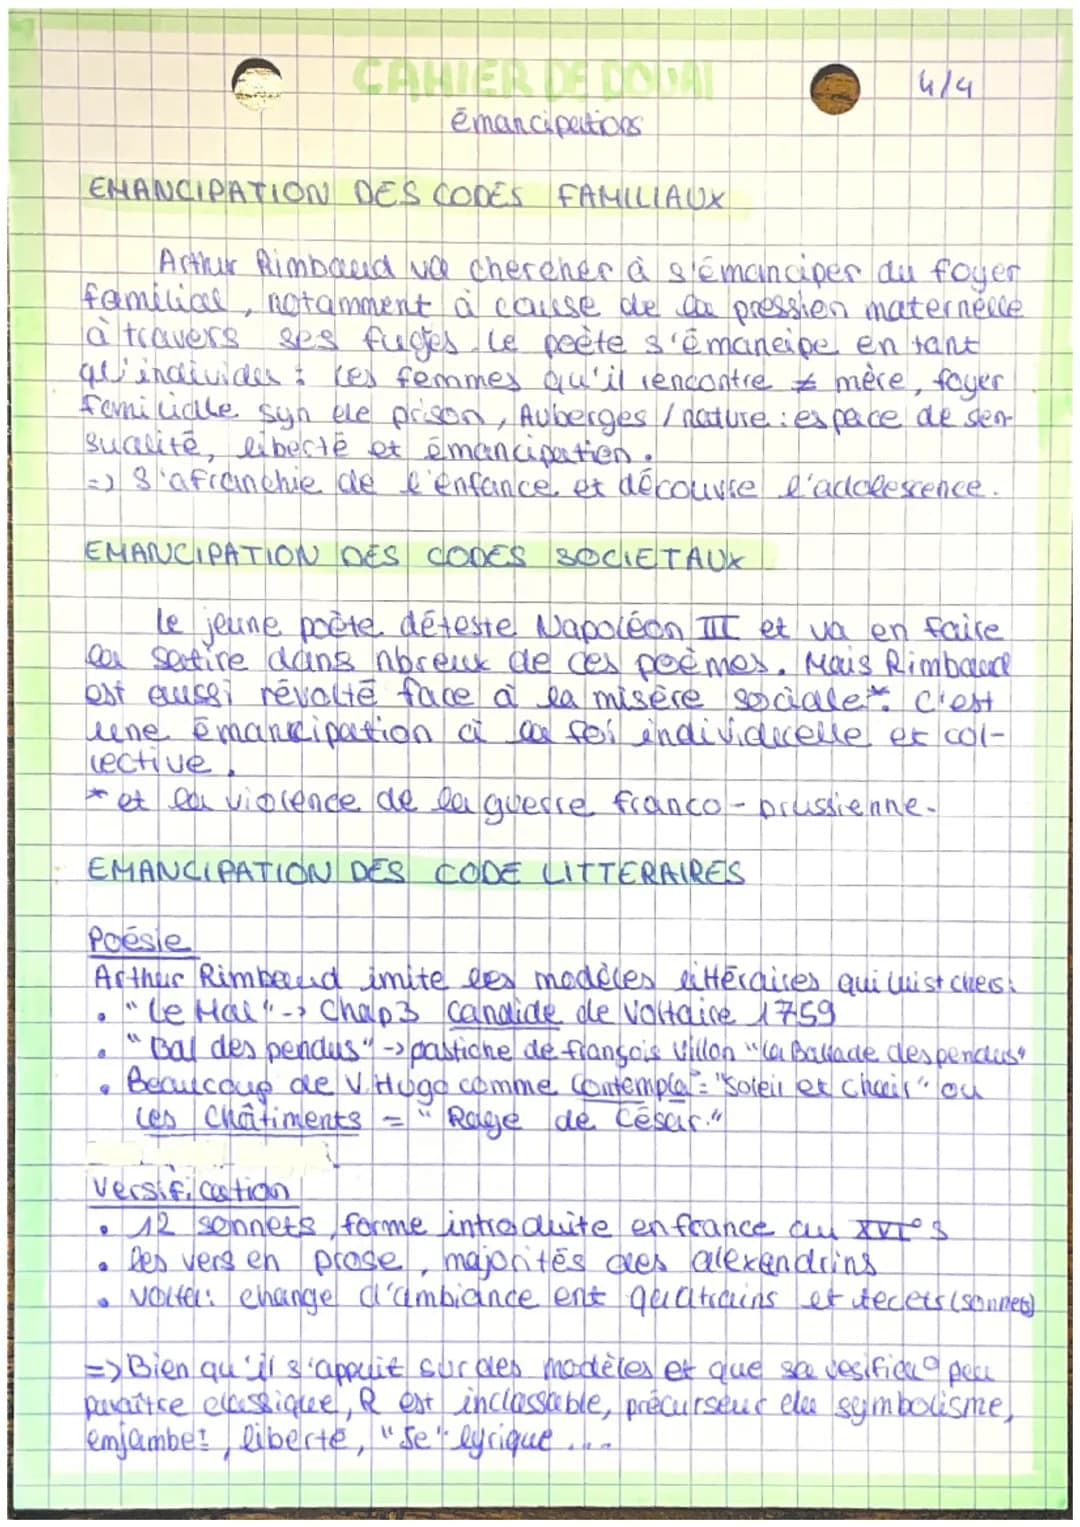 CAHIER DE DOUAI
4/4
émancipations
EMANCIPATION DES CODES FAMILIAUX
Arthur Rimbaud va chercher à s'émanciper du foyer
familial, notamment à cause de la pression maternelle
à travers ses fuges. Le poète s'émancipe en tant
qu'individu : les femmes qu'il rencontre ≠ mère, foyer
familiale syn de prison, Auberges / nature : espace de sen-
sualité, liberté et émancipation.
=> S'afranchie de l'enfance et découvre l'adolescence.
EMANCIPATION DES CODES SOCIETAUX
Le jeune poète déteste Napoléon III et va en faire
la satire dans nbreux de ces poèmes. Mais Rimbaud
est aussi révolté face à la misère sociale*. C'est
une émancipation à la foi individuelle et col-
lective.
* et la violence de la guerre franco-prussienne.
EMANCIPATION DES CODE LITTERAIRES
Poésie
Arthur Rimbaud imite les modèles littéraires qui lui st chers :
• "Le Mal" -> Chap3 Candide de Voltaire 1759
• "Bal des pendus" -> pastiche de françois Villon "La Ballade des pendus"
• Beaucoup de V.Hugo comme Contempla° = "Soleil et chair" ou
Les Châtiments = "Rage de César."
Versification
• 12 sonnets, forme introduite en france au XVI° s
• Des vers en prose, majorités des alexandrins
• Volta : change d'ambiance ent quatrains et tecets (sonnets)
=> Bien qu'il s'appuit sur des modèles et que sa vesifica° peu
paraître classique, R est inclassable, précurseur du symbolisme,
enjambet, liberté, "Je" lyrique ...